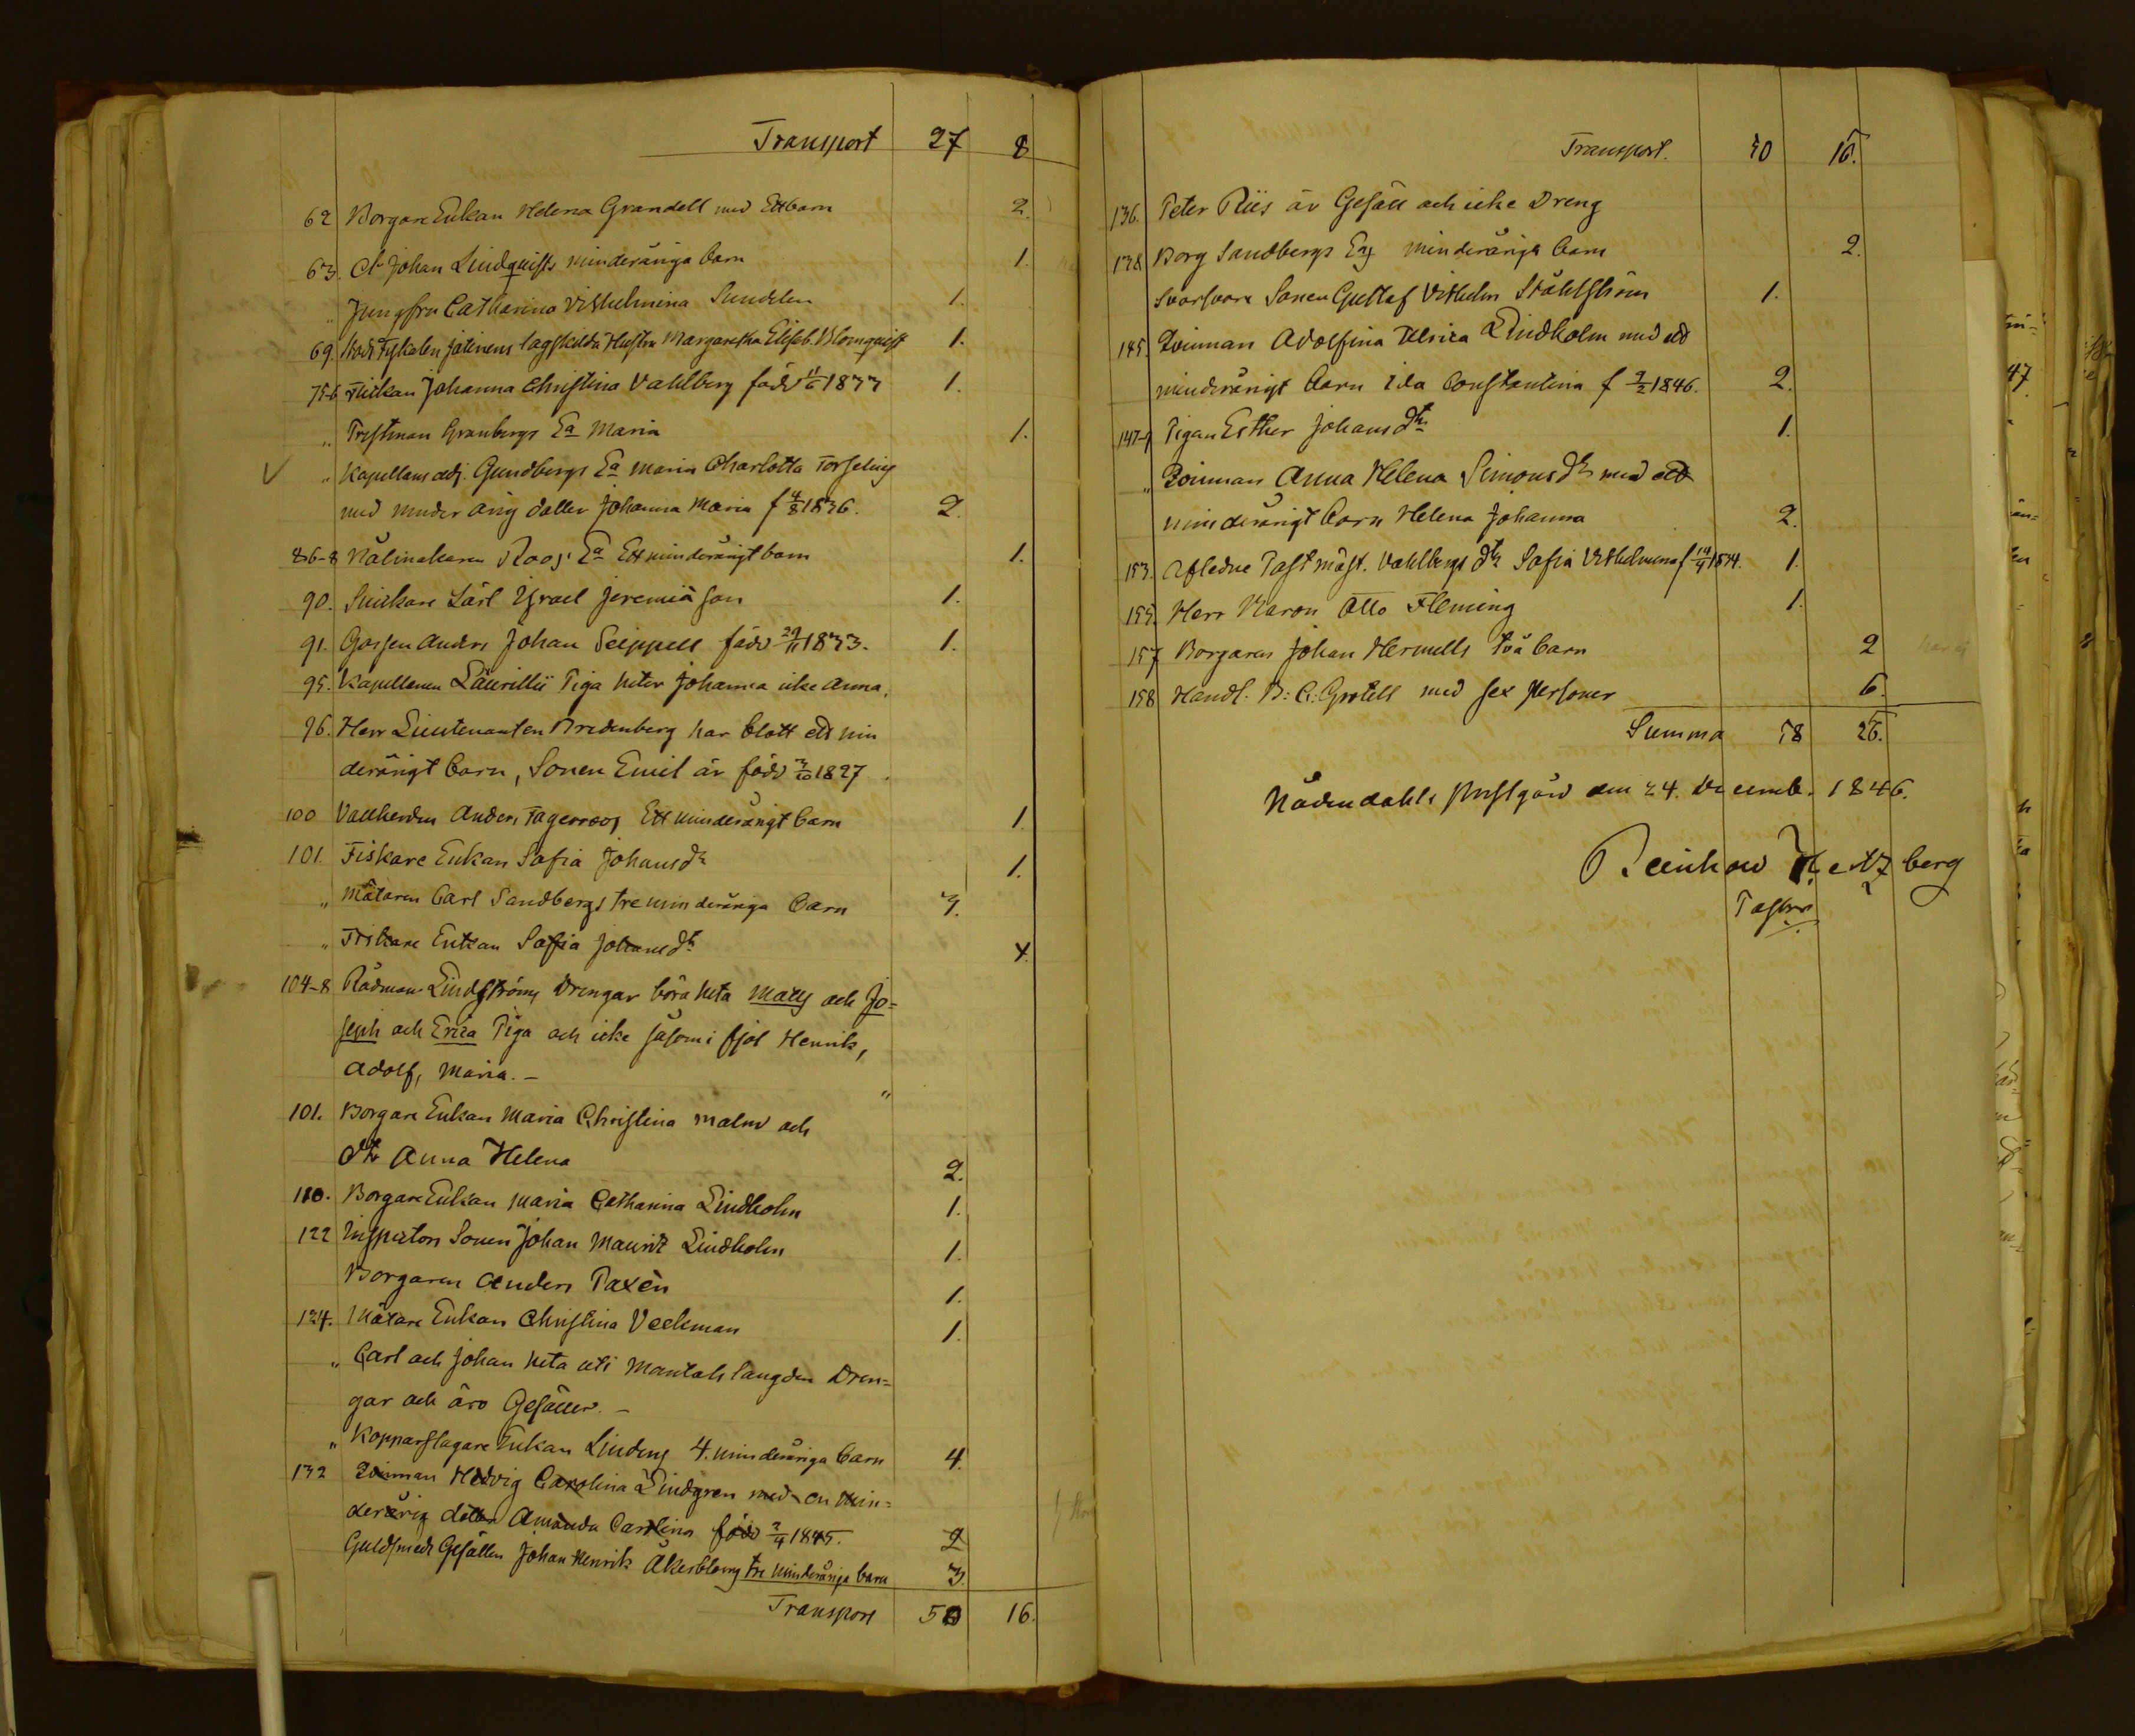 Transport 27 8
62 Borgare Enkan Helena Grandell med Ett barn 2.
63. Johan Lindquists minderåriga barn 1.
„ Jungfru Catharina Vilhelmina Sundelin 1.
69. Stads Fiskalen lagskilda Hustru Margaretha Elisab. Blomqvist 1.
75-6 Flickan Johanna Christina Vahlberg född 11/6 1833 1.
„ Granbergs Ea Maria 1.
„ Kapellans adj. Gundbergs Ea Maria Charlotta Forseling
med minder årig dotter Johanna Maria f 4/8 1836. 2
86-8 Nålmakaren Roos' Ea Ett minderårigt barn 1.
90. Snickare Lärl Israel Jeremiä son 1.
91. Gossen Anders Johan Seippell född 29/11 1833. 1.
95. Kapellanen Laurillii Piga heter Johanna icke Anna.
96. Herr Lieutenanten Bredenberg har blott ett min
derårigt barn, Sonen Emil är född 3/10 1827
100 Vallherden Anders Fagerroos Ett minderårigt barn 1
101. Fiskare Enkan Sofia Johansdr 1.
„ Mätaren Carl Sandbergs tre minderåriga barn 3.
„ Fiskare Enkan Sofia Johansdr
104-8 Rådman Lindströms Drengar böra heta Matts och Jo=
seph och Erica Piga och icke såsom i fjol Henrik,
Adolf, Maria. — „
101. Borgare Enkan Maria Christina Malm och
dr Anna Helena 2.
110. Borgare Enkan Maria Catharina Lindholm 1.
122 Inspectors Sonen Johan Mauritz Lindholm 1.
Borgaren Anders Paxèn 1.
124. Mätare Enkan Christina Veckman 1.
„ Carl och Johan heta uti Mantals längden Dren=
gar och äro Gesäller. —
„ Kopparslagare Enkan Lindens 4. minderåriga barn 4.
132 Qvinnan Hedvig Carolina Lindgren med en Min=
derårig dotter Amanda Carolina född 2/4 1845. 2
Guldsmeds Gesällen Johan Henrik Åkerbloms tre minderåriga barn 3.
Transport 50 16.
Transport. 50 16.
136. Peter Riis är Gesäll och icke Dreng
138 Borg Sandbergs Eas minderåriga barn 2.
Svarfvare Sonen Gustaf Vilhelm Ståhlström 1.
145. Qvinnan Adolfina Ulrica Lindholm med ett
minderårigt barn Ida Constantina f 9/2 1846. 2.
147-9 Pigan Esther Johansdtr 1.
„ Qvinnan Anna Helena Simonsdr med ett
minderårigt barn Helena Johanna 2.
153. Afledne Postmäst. Vahlbergs dtr Sofia Vilhelmina f 14/4 1834. 1.
155. Herr Baron Otto Fleming 1.
157 Borgaren Johan Hermells två barn 2
158 Handl. B: G: Grotell med sex personer 6.
Summa 58 26.
Nådendahls Prestgård den 24. Decemb. 1846.
Reinhold Hertzberg
Pastor